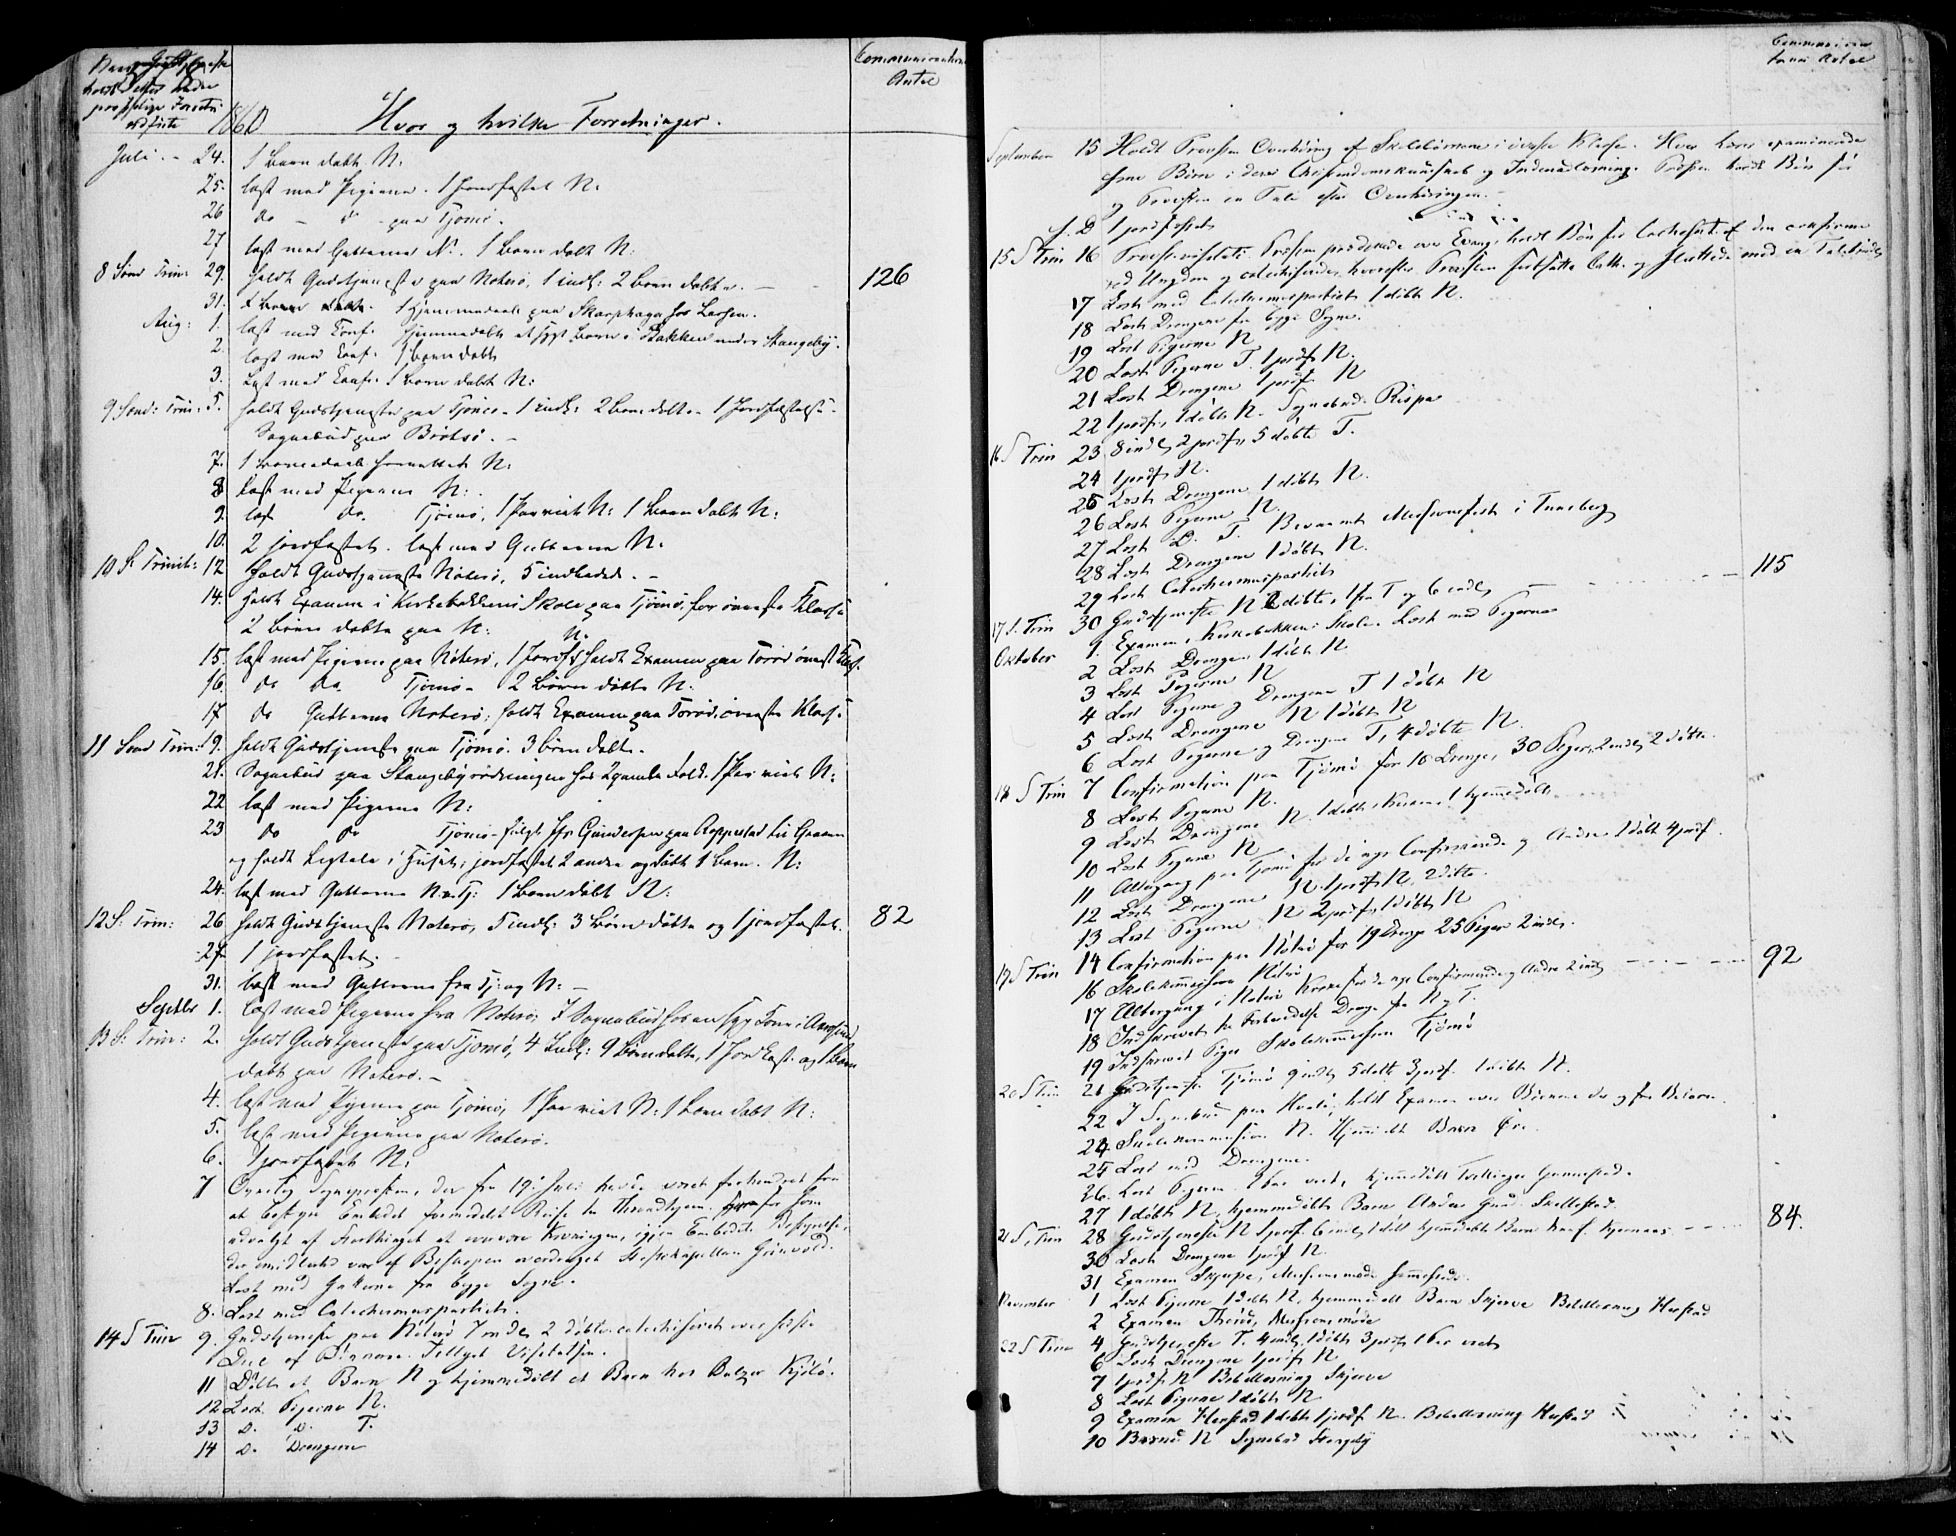 Communicanternes
Antal
1860 Hvor og hvilke Forretninger.
Juli. - 24. 1 Barn døbt N:
25. læst med Pigerne. 1 Jordfæstet N:
26 do - do - paa Tjømø.
27 læst med Gutterne N. 1 Barn døbt N:
8 Sønd Trin: 29. holdt Gudstjeneste paa Nøterø, 1 indl: 2 Børn døbte. - 126
31. 1 Hjemmedaab paa Skarphaga hos Larsen.
Aug: 1. læst med Conf. hjemmedøbt et sygt Barn i Bakken under Stangeby.
2. læst med Conf. 1 Barn døbt
3. læst med Conf. 1 Barn døbt N:
9 Sønd: Trin: 5. holdt Gudstjeneste paa Tjømø - 1 indl: 2 Børn døbte - 1 Jordfæstelse -
Sognebud paa Brøtsø. -
7. 1 Barnedaab forrettet N:
8 læst med Pigerne N:
9. læst do. Tjømø, 1 Par viet N: 1 Barn døbt N:
10. 2 jordfæstet. læst med Gutterne N.
10 S: Trinit: 12 holdt Gudstjeneste Nøterø, 5 indledede. -
14. holdt Examen i Kirkebakkens Skole paa Tjømø, for øverste Klasse
2 Børn døbte paa N:
15. læst med Pigerne paa Nøterø, 1 Jordf. N. holdt Examen paa Torød øverst Klas.
16. do do. Tjømø - 2 Børn døbte N.
17 do Gutterne Nøterø; holdt Examen paa Torød øverste Klasse
11 Sønd Trin: 19. holdt Gudstjeneste paa Tjømø. 3 Børn døbte.
21. Sognebud paa Stangebyrødningen hos 2 gamle Folk. 1 Par viet N:
22 læst med Pigerne N:
23 do do Tjømø - fulgt Gundersen paa Røppestad til Graven
og holdt Ligtale i Huset; jordfæstet 2 andre og døbt 1 Barn. N:
24. læst med Gutterne N. og Tj: 1 Barn døbt N.
12 S: Trin: 26 holdt Gudstjeneste Nøterø, 5 indl: 3 Børn døbte og 1 jordfæstet. 82
27 1 jordfæstet. -
31. læst med Gutterne fra Tj: og N: -
Septbr 1. læst med Pigerne fra Nøterø; I Sognebud hos en syg Kone i Aarøsund
13 S: Trin: 2. holdt Gudstjeneste paa Tjømø, 4 Indl: 9 Børn døbte, 1 Jordfæst. og 1 Barn
døbt paa Nøterø. -
4. læst med Pigerne paa Tjømø, 1 Par viet N: 1 Barn døbt N:
5. læst med Pigerne paa Nøterø.
6. 1 jordfæstet N:
7 Sognepresten, der fra 19. Juli havde været forhindret fra
at bestyre Embedet formedelst Reise til Throndhjem, som
udvalgt af Storthinget at overvære Kroningen, igjen Embedets Bestyrelse,
der imidlertid var af Biskopen overdraget Grønvold.
Læst med Gutterne fra begge Sogne.
8. Læst med Catechismuspartiet.
14 S Trin 9. Gudstjeneste paa Nøterø 7 indl, 2 døbte, catechiseret over sidste
Deel af Børnene. Tillyst Visitatsen.
11 Døbt et Barn N og hjemmedøbt et Barn hos Balzer Kjøbø.
12 Læst Pigerne N.
13 D. D. T.
14 D. Drengene
Antal
September 15 Holdt Provsten Overhøring af Skolebørnene i øverste Klasse. Hver Lærer examinerede
sine Børn i deres Christendomskundskab og Indenadlæsning. Provsten holdt Bøn før
og Provsten en Tale efter Overhøringen. -
S. D 1 jordfæstet
15 S Trin 16 Provstevisitats. Provsten prædikede over Evang. holdt Bøn for den confirmerede
Ungdom og catechiserede, hvorefter Provsten fortsatte Cath. og sluttede med en Tale
17 Læst med Catechismuspartiet 1 døbt N.
18 Læst Drengene fra begge Sogne.
19 Læst Pigerne N
20 Læst Pigerne T. 1 jordf. N.
21 Læst Drengene 1 jordf. N
22 1 jordf. 1 døbt N. Sognebud
16 S Trin 23 8 indl, 2 jordf, 5 døbte T.
24 1 jordf N.
25 Læst Drengene 1 døbt N.
26 Læst Pigerne N
27 Læst D. T. Missionsfest i Tunsberg
28 Læst Drengene 1 døbt N.
29 Læst Catechismuspartiet
17 S. Trin 30 Gudstjeneste N 2 døbte, 1 fra T og 6 indl - 115
Oktober 1. Examen i Kirkebakkens Skole. Læst med Pigerne
2 Læst Drengene 1 døbt N
3 Læst Pigerne N
4 Læst Pigerne og Drengene T 1 døbt N
5 Læst Drengene N 1 døbt N
6 Læst Pigerne og Drengene T, 4 døbte N.
18 S Trin 7 Confirmation paa Tjømø for 18 Drenge, 30 Piger, 2 indl, 2 døbte.
8 Læst Pigerne N.
9 Læst Drengene N. 1 døbt, 1 hjemmedøbt
10 Læst Pigerne N
11 Altergang paa Tjømø for de nye Confirmerede og Andre 1 døbt 4 jordf.
12 Læst Drengene N. 1 jordf N. 2 døbte.
13 Læst Pigerne N 2 jordf, 1 døbt N
19 S Trin 14 Confirmation paa Nøterø for 19 Drenge 25 Piger 2 indl.
16 Skolekommission Nøterø
17 Altergang i Nøterø Kirke for de nye Confirmerede og Andre 2 indl - 92
18 Indskrevet til Forberedelse Drenge fra N og T.
19 Indskrevet Piger Skolekommission Tjømø
20 S Trin 21 Gudstjeneste Tjømø 9 indl 5 døbte 3 jordf. 1 døbt N.
22 I Sognebud paa Hvalø, holdt Examen over Børnene der og fra
24 Skolekommission N. Hjemmedøbt Barn
25 Læst med Drengene.
26. Læst Pigerne. 1 Par viet, hjemmedøbt Tvillinger
27 1 døbt N, hjemmedøbt Barn Skallestad.
21 S. Trin 28 Gudstjeneste N 1 jordf. 6 indl, 1 døbt hjemmedøbt Barn - 84.
30 Læst Drengene 1 jordf N.
31 Examen Skjerpe, Missionsmøde
November 1 Læst Pigerne 1 døbt N, hjemmedøbt Barn Skjerve Bibellæsning Herstad
2 Examen Thorød, Missionsmøde
22 S Trin 4 Gudstjeneste T. 4 indl, 1 døbt 3 jordf 1 Par viet
6 Læst Drengene 1 jordf N
7 1 jordf N Bibellæsning Skjerve
8 Læst Pigerne 1 døbt N
9 Examen Herstad 1 døbt 1 jordf. N. Bibellæsning Herstad
10 N Sognebud Stangeby